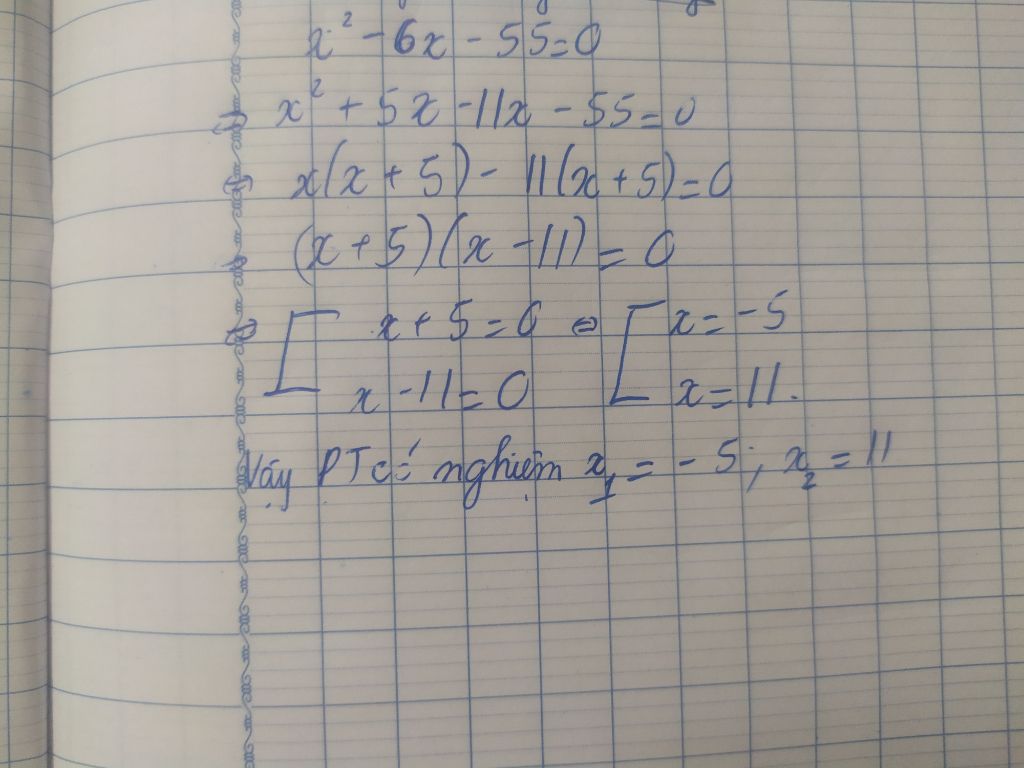 x² - 6x - 55 = 0
⇔ x² + 5x - 11x - 55 = 0
⇔ x(x + 5) - 11(x + 5) = 0
⇔ (x + 5)(x - 11) = 0
⇔ [ x + 5 = 0 ⇔ [ x = -5
x - 11 = 0 x = 11.
Vậy PT có nghiệm x₁ = - 5; x₂ = 11